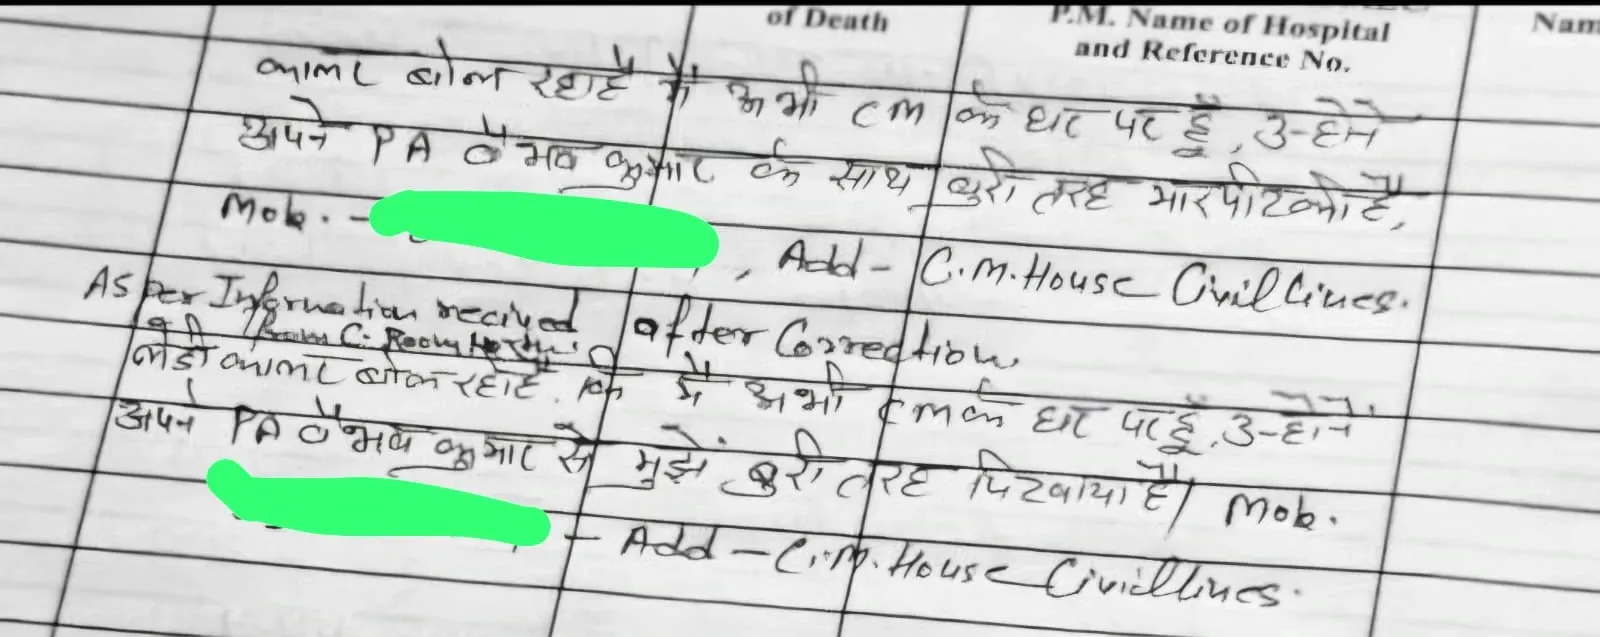 of Death
P.M. Name of Hospital
and Reference No.
Nam
कालर बोल रहा है मैं अभी CM के घर पर हूँ, उन्होंने
अपने PA वैभव कुमार के साथ बुरी तरह मारपीट की है,
Mob. - , Add - C.M. House Civil Lines.
As per Information recived after Correction.
from C. Room
लेडी कालर बोल रही है. कि मैं अभी CM के घर पर हूँ, उन्होंने
अपने PA वैभव कुमार से मुझे बुरी तरह पिटवाया है। Mob.
- Add - C.M. House Civil Lines.